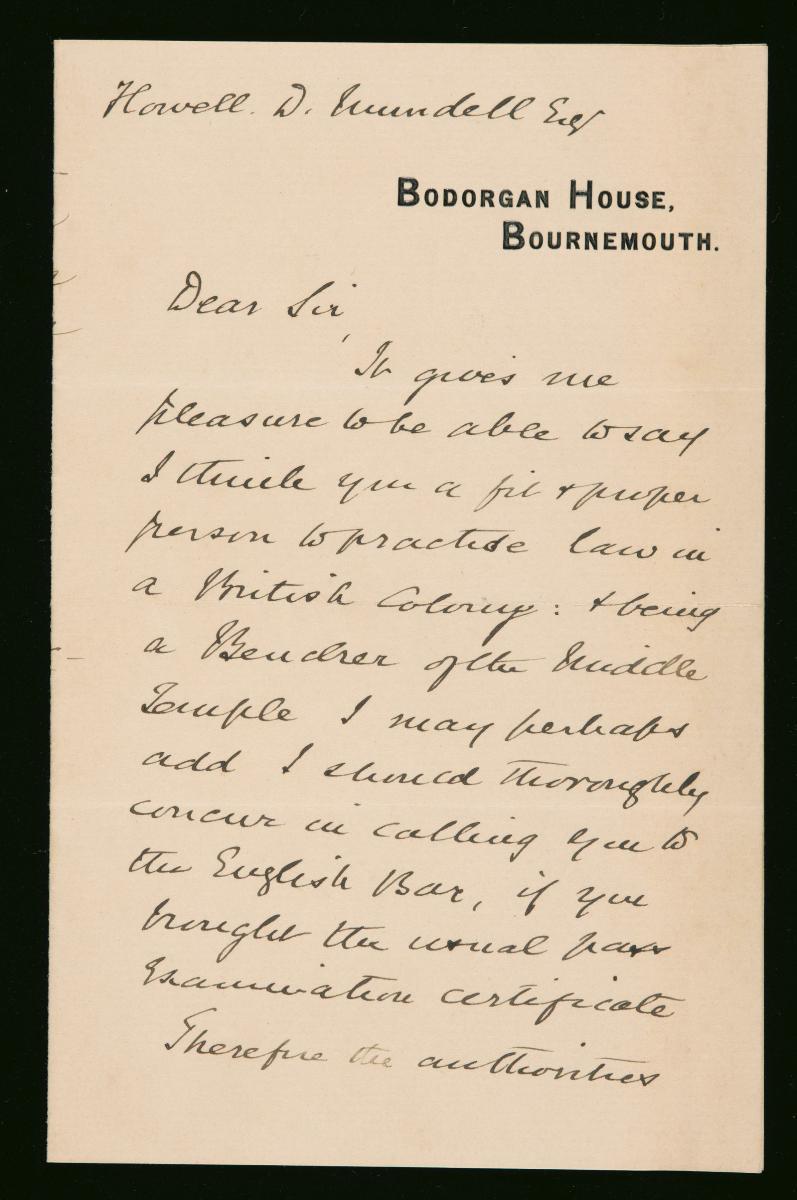 Howell. D. Mundell Esq
BODORGAN HOUSE,
BOURNEMOUTH.
Dear Sir,
It gives me
pleasure to be able to say
I think you a fit & proper
person to practise law in
a British Colony: & being
a Bencher of the Middle
Temple I may perhaps
add I should thoroughly
concur in calling you to
the English Bar, if you
brought the usual pass
Examination certificate
Therefore the authorities